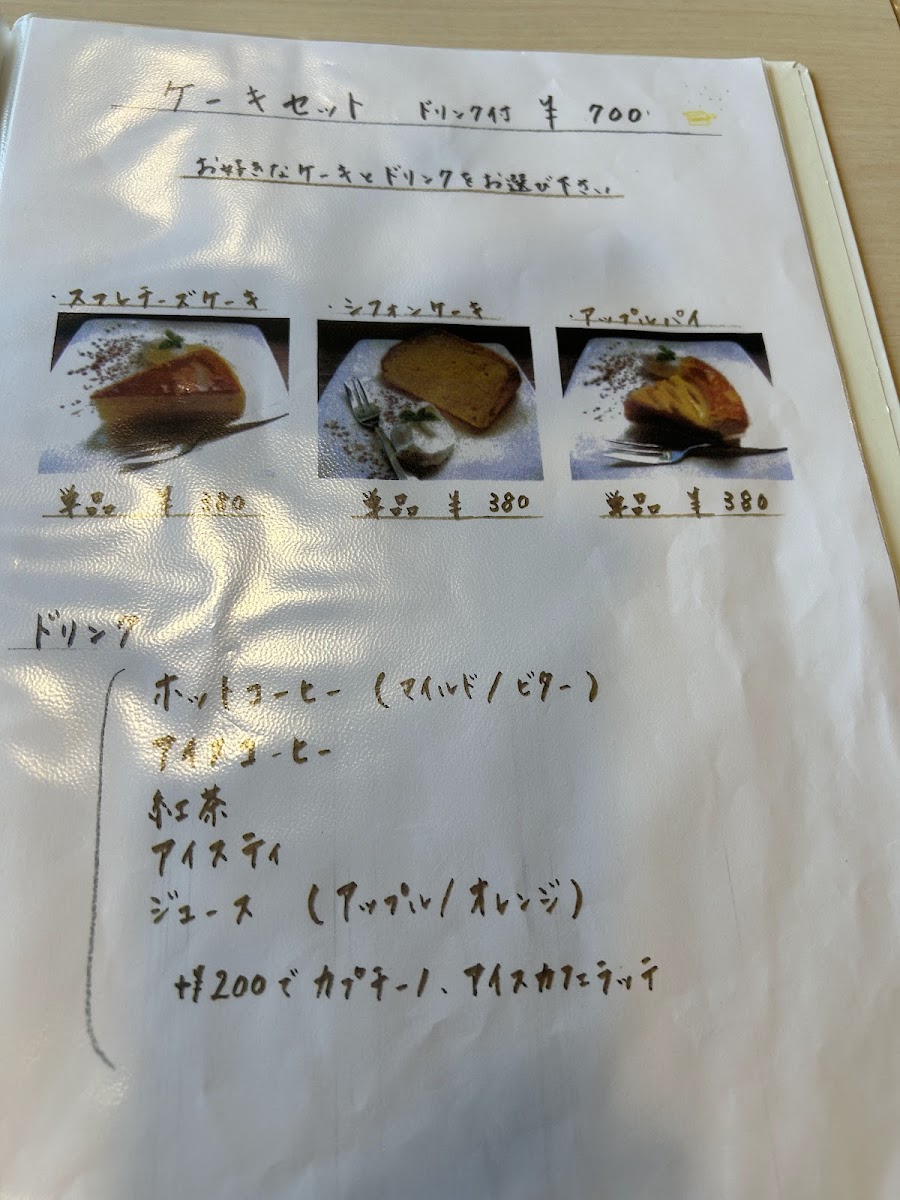 ケーキセット ドリンク付 ¥700
お好きなケーキとドリンクをお選び下さい
・スフレチーズケーキ
・シフォンケーキ
・アップルパイ
単品 ¥380
単品 ¥380
単品 ¥380
ドリンク
ホットコーヒー (マイルド/ビター)
アイスコーヒー
紅茶
アイスティ
ジュース (アップル/オレンジ)
+¥200で カプチーノ、アイスカフェラッテ